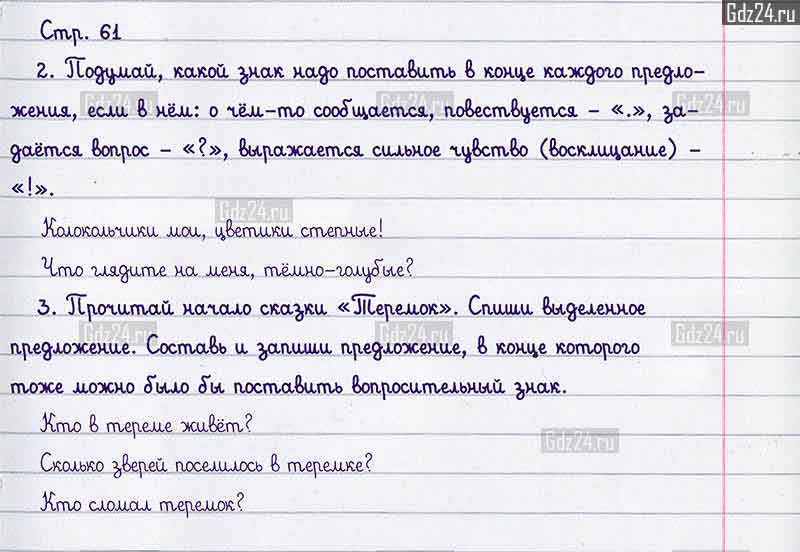 Gdz24.ru
Стр. 61
2. Подумай, какой знак надо поставить в конце каждого предло-
жения, если в нём: о чём-то сообщается, повествуется - «.», за-
Gdz24.ru Gdz24.ru Gdz24.ru
даётся вопрос - «?», выражается сильное чувство (восклицание) -
«!».
Gdz24.ru
Колокольчики мои, цветики степные!
Что глядите на меня, тёмно-голубые?
3. Прочитай начало сказки «Теремок». Спиши выделенное
Gdz24.ru Gdz24.ru Gdz24.ru
предложение. Составь и запиши предложение, в конце которого
тоже можно было бы поставить вопросительный знак.
Кто в тереме живёт?
Gdz24.ru
Сколько зверей поселилось в теремке?
Кто сломал теремок?